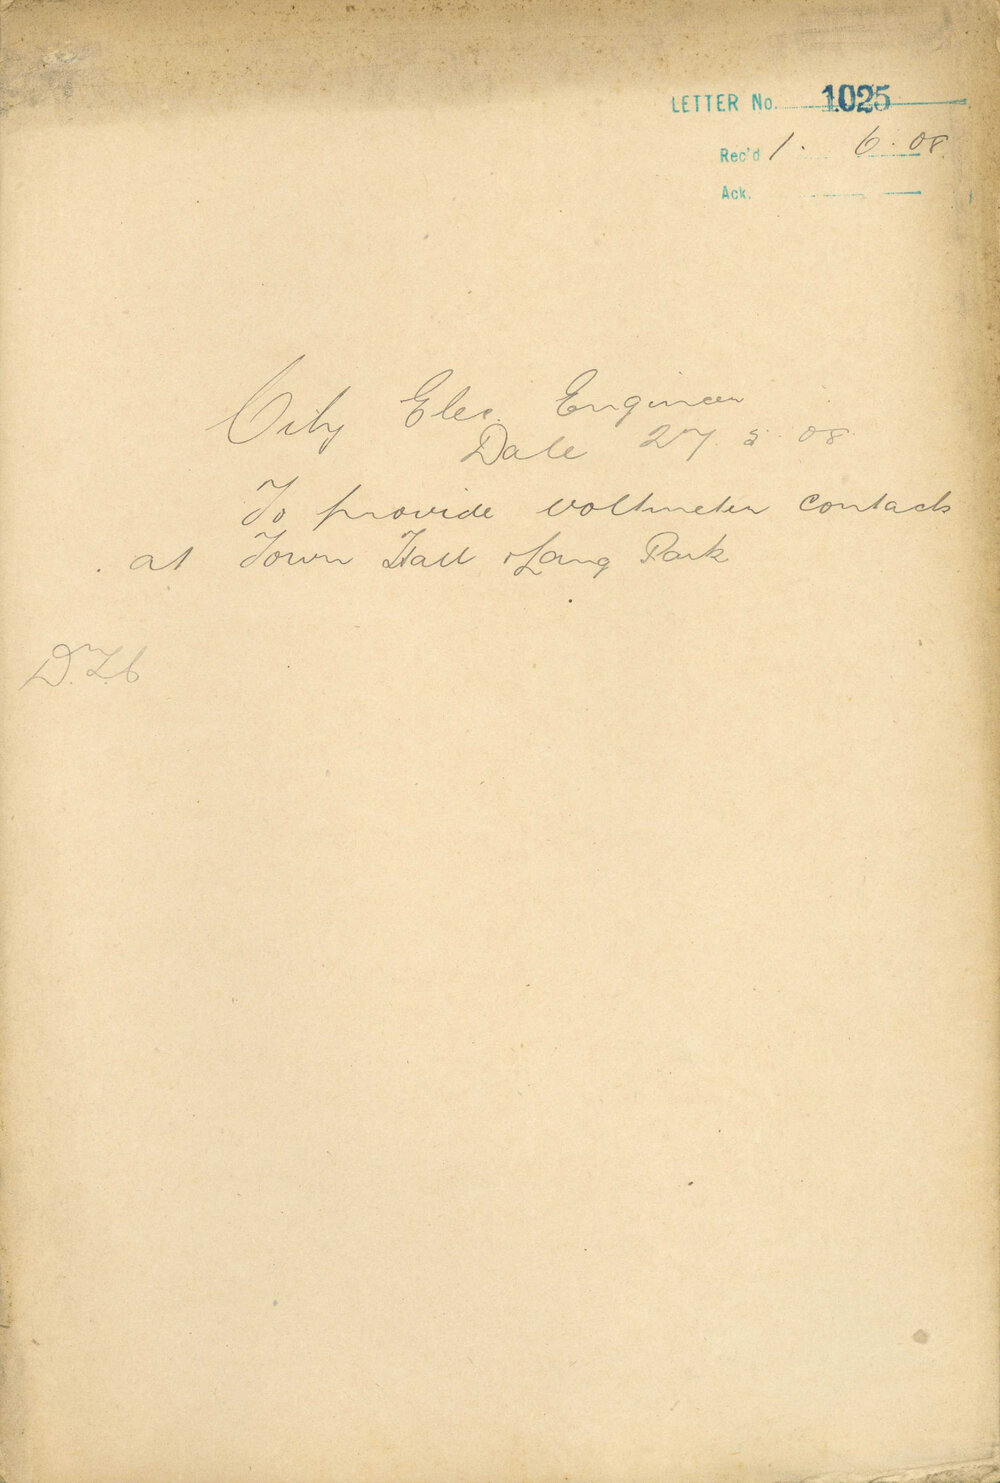 LETTER No. 1025
Rec'd 1. 6. 08
Ack.
City Elec. Engineer
Date 27. 5. 08
To provide voltmeter contacts
at Town Hall & Lang Park